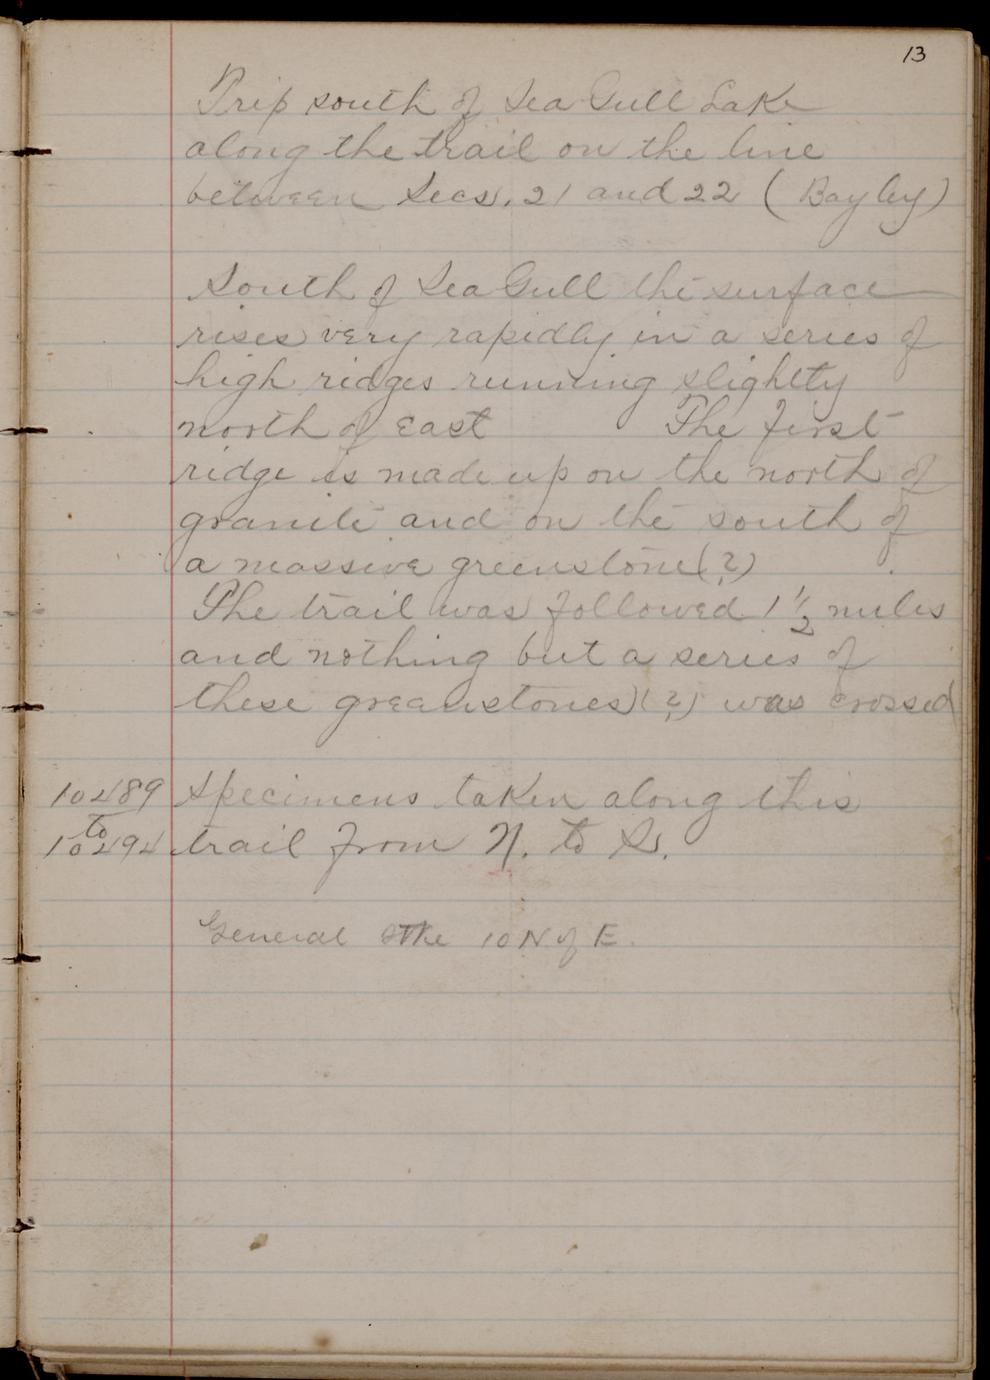 13
Trip south of Sea Gull Lake
along the trail on the line
between Secs. 21 and 22 (Bayley)
South of Sea Gull the surface
rises very rapidly in a series of
high ridges running slightly
north of east The first
ridge is made up on the north of
granite and on the south of
a massive greenstone(?)
The trail was followed 1 1/2 miles
and nothing but a series of
these greenstones(?) was crossed
10489 Specimens taken along this
to
10494 trail from N. to S.
General 10 N of E.